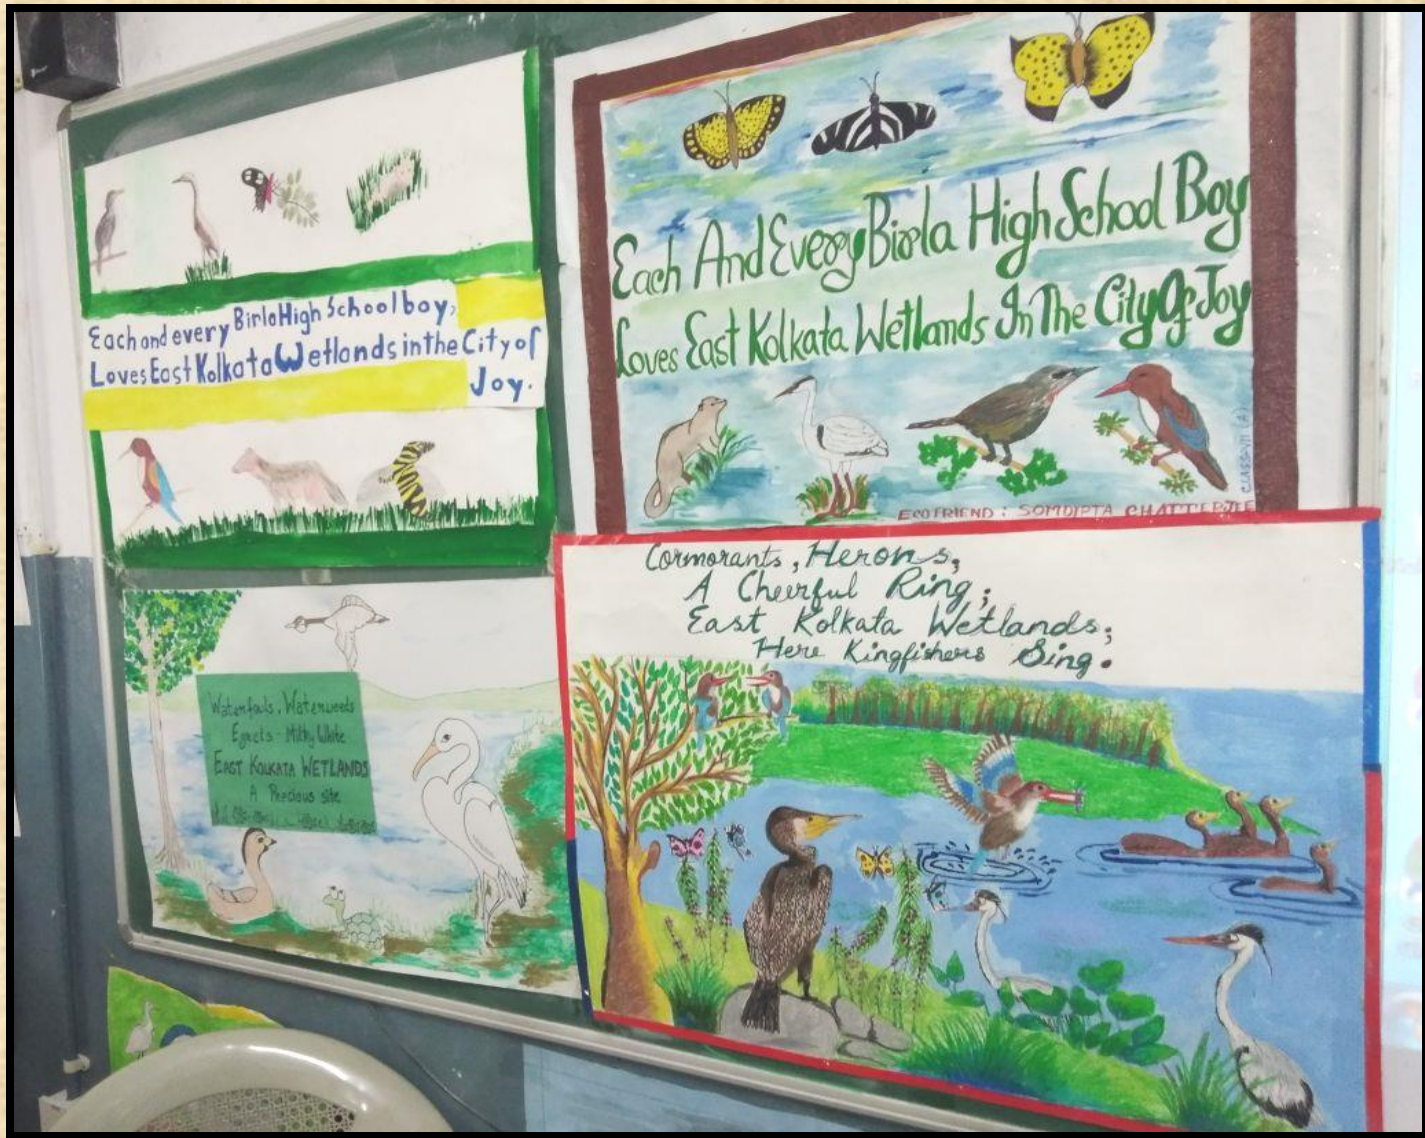 Each and every Birla High School boy,
Loves East Kolkata Wetlands in the City of
Joy.
Each And Every Birla High School Boy
Loves East Kolkata Wetlands In The City Of Joy
ECOFRIEND : SOMDIPTA CHATTERJEE
CLASS-VII (A)
Waterfowls, Waterweeds
Egrets - Milky White
EAST KOLKATA WETLANDS
A Precious site
Cormorants, Herons,
A Cheerful Ring;
East Kolkata Wetlands;
Here Kingfishers Sing.